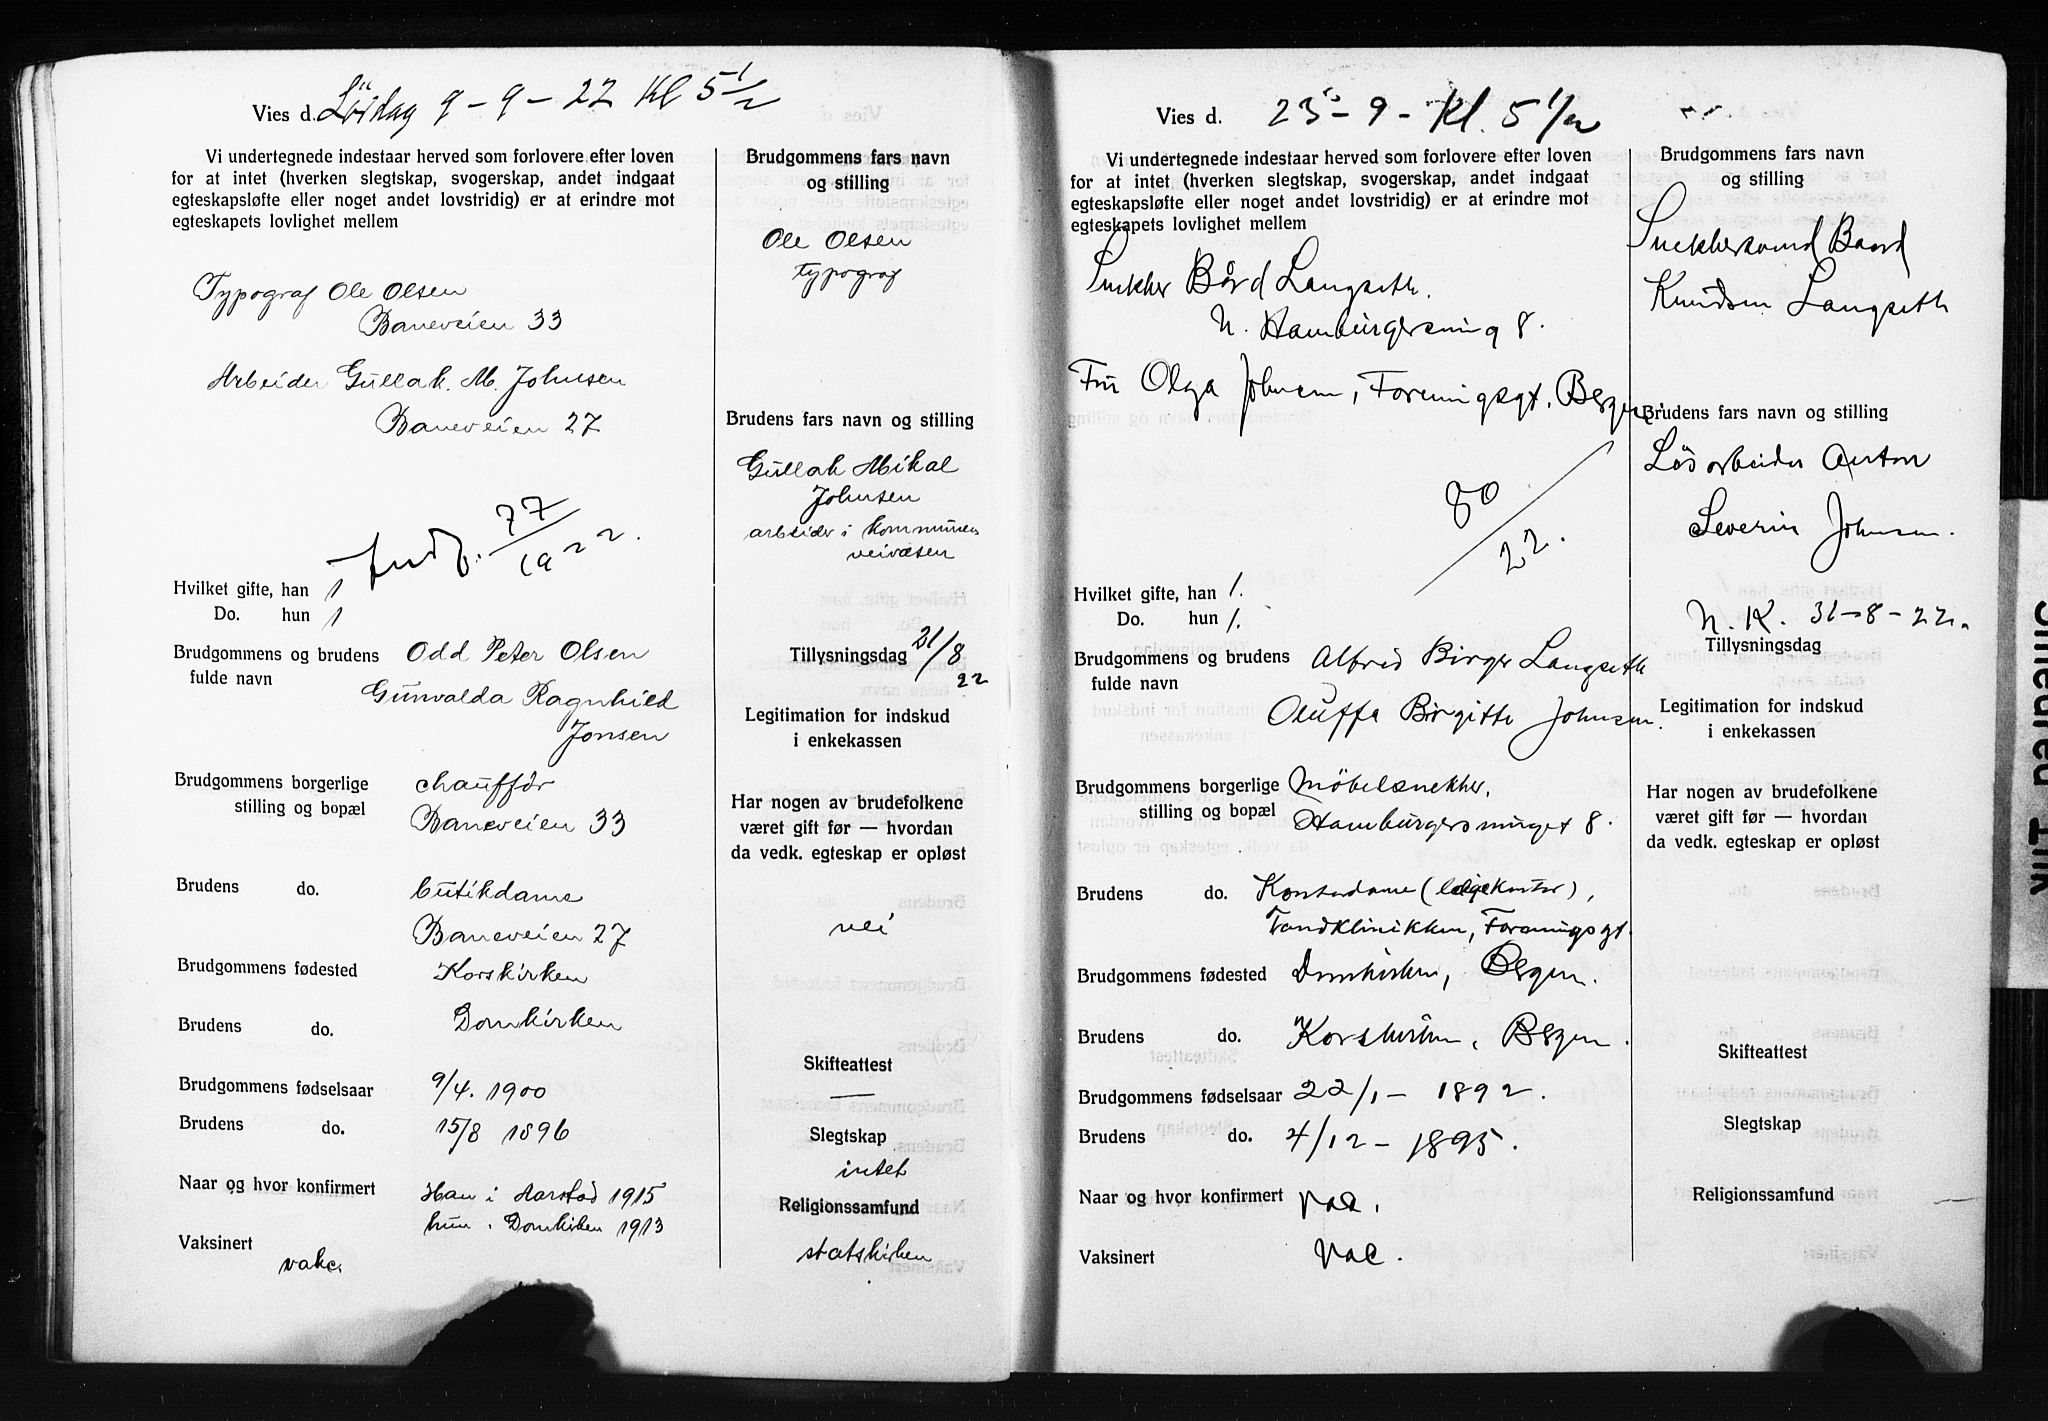 Vies d. Lördag 9 - 9 - 22 Kl 5 1/2
Vi undertegnede indestaar herved som forlovere efter loven
for at intet (hverken slegtskap, svogerskap, andet indgaat
egteskapsløfte eller noget andet lovstridig) er at erindre mot
egteskapets lovlighet mellem
Typograf Ole Olsen
Baneveien 33
Arbeider Gullak. M. Johnsen
Baneveien 27
Indf. 77/1922.
Hvilket gifte, han 1
Do. hun 1
Brudgommens og brudens Odd Peter Olsen
fulde navn Gunvalda Ragnhild
Jonsen
Brudgommens borgerlige chauffør
stilling og bopæl Baneveien 33
Brudens do. butikdame
Baneveien 27
Brudgommens fødested Korskirken
Brudens do. Domkirken
Brudgommens fødselsaar 9/4. 1900
Brudens do. 15/8 1896
Naar og hvor konfirmert Han i Aarstad 1915
hun i Domkirken 1913
Vaksinert vakc.
Brudgommens fars navn
og stilling
Ole Olsen
typograf
Brudens fars navn og stilling
Gullak Mikal
Johnsen
arbeider i kommunens
veivæsen
Tillysningsdag 21/8
22
Legitimation for indskud
i enkekassen
Har nogen av brudefolkene
været gift før — hvordan
da vedk. egteskap er opløst
nei
Skifteattest
—
Slegtskap
intet
Religionssamfund
statskirken
Vies d. 23 - 9 - Kl. 5 1/2
Vi undertegnede indestaar herved som forlovere efter loven
for at intet (hverken slegtskap, svogerskap, andet indgaat
egteskapsløfte eller noget andet lovstridig) er at erindre mot
egteskapets lovlighet mellem
Snekker Bård Langseth.
N. Hamburgersmug 8.
Fru Olga Johnsen, Foreningsgt. Bergen.
80/22.
Hvilket gifte, han 1.
Do. hun 1.
Brudgommens og brudens Alfred Birger Langseth
fulde navn Oluffa Birgitte Johnsen.
Brudgommens borgerlige Möbelsnekker,
stilling og bopæl Hamburgersmuget 8.
Brudens do. Kontordame
Tandklinikken, Foreningsgt.
Brudgommens fødested Domkirken, Bergen.
Brudens do. Korskirken, Bergen.
Brudgommens fødselsaar 22/1 - 1892.
Brudens do. 4/12 - 1895.
Naar og hvor konfirmert vac.
Vaksinert vac.
Brudgommens fars navn
og stilling
Snekkersvend Baard
Knudsen Langseth
Brudens fars navn og stilling
Løsarbeider Anton
Severin Johnsen.
N. K. 31-8-22.
Tillysningsdag
Legitimation for indskud
i enkekassen
Har nogen av brudefolkene
været gift før — hvordan
da vedk. egteskap er opløst
Skifteattest
Slegtskap
Religionssamfund